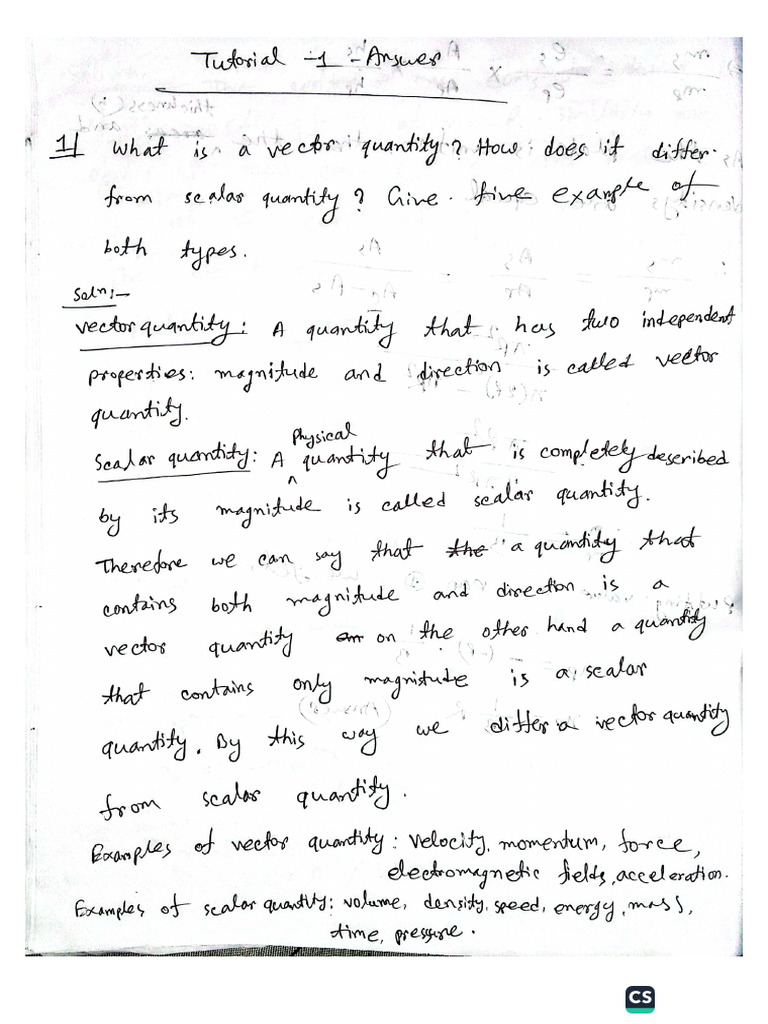 Tutorial -1 - Answer
1| What is a vector quantity? How does it differ
from scalar quantity? Give five example of
both types.
Soln:-
vector quantity: A quantity that has two independent
properties: magnitude and direction is called vector
quantity.
Scalar quantity: A physical quantity that is completely described
by its magnitude is called scalar quantity.
Therefore we can say that the a quantity that
contains both magnitude and direction is a
vector quantity on the other hand a quantity
that contains only magnitude is a scalar
quantity. By this way we differ a vector quantity
from scalar quantity.
Examples of vector quantity: velocity, momentum, force,
electromagnetic fields, acceleration.
Examples of scalar quantity: volume, density, speed, energy, mass,
time, pressure.
CS